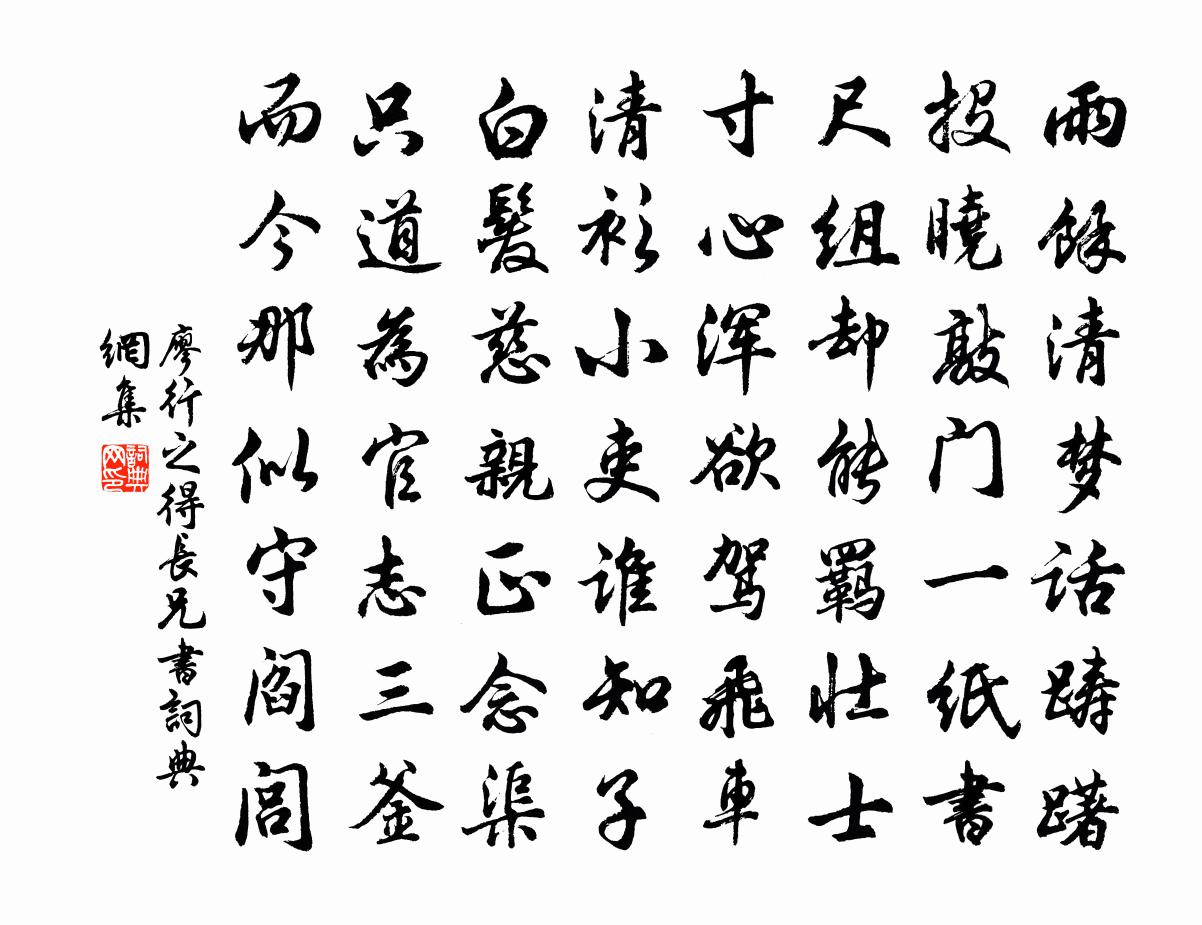 雨餘清梦话踌躇
投曉敲门一纸書
尺组却能羁壮士
寸心浑欲驾飛車
清衫小吏谁知子
白髮慈親正念渠
只道為官志三釜
而今那似守阎闾
廖行之得長兄書詞典
網集
詞典
网印